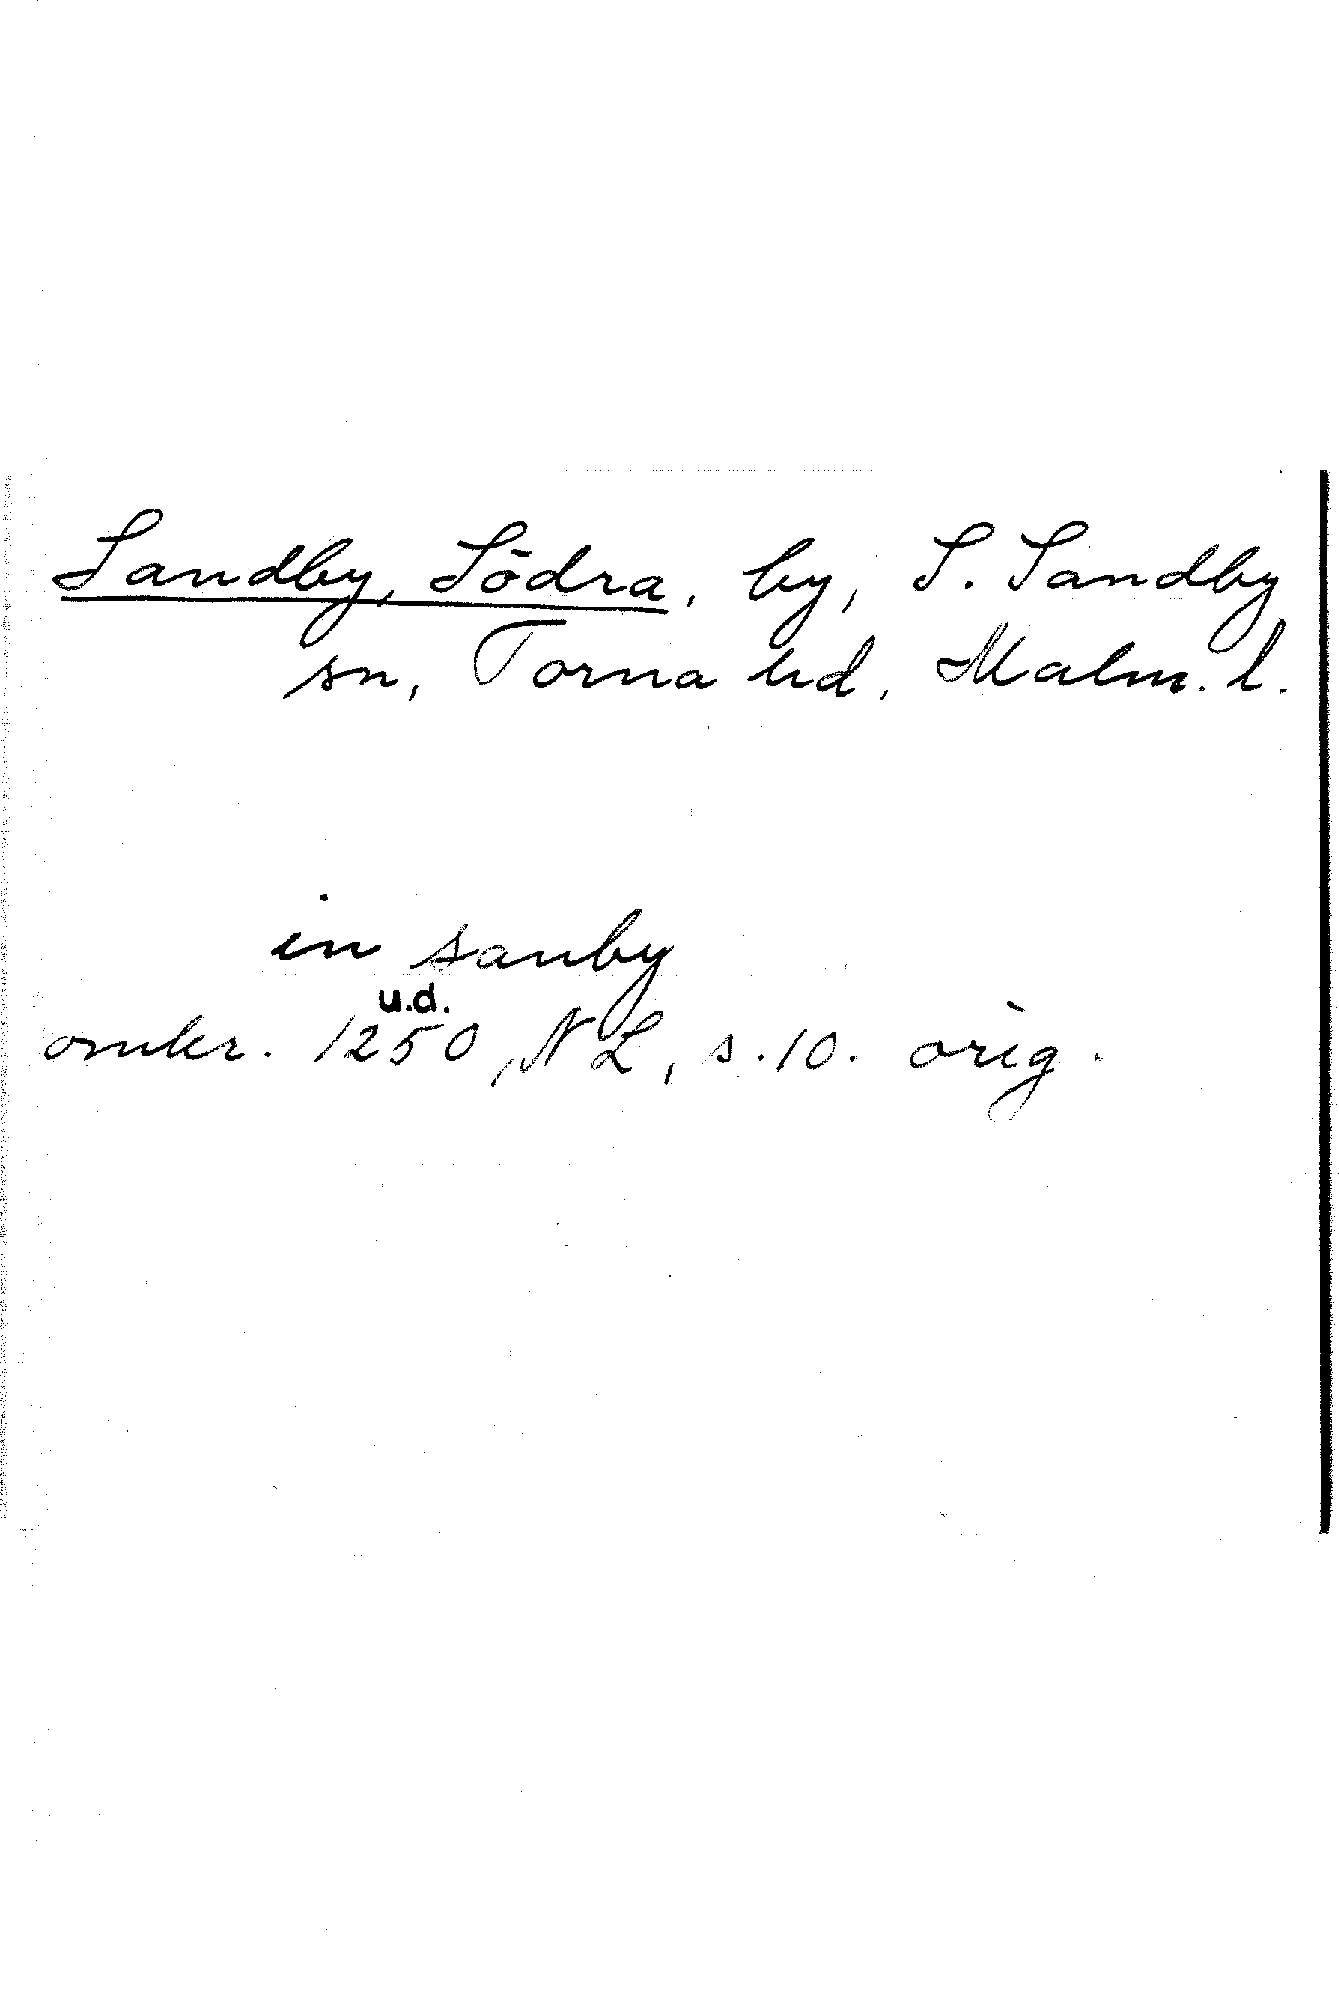 Sandby, Södra, by, S. Sandby
sn, Torna hd, Malm. l.
in sanby
u.d.
omkr. 1250, NL, s. 10. orig.